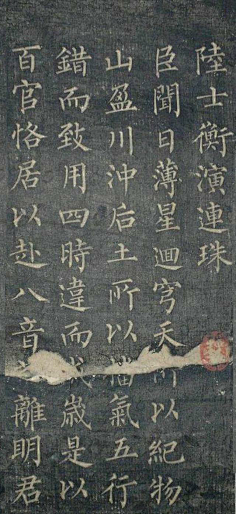 陸士衡演連珠
臣聞日薄星迴穹天所以紀物
山盈川沖后土所以播氣五行
錯而致用四時違而成歲是以
百官恪居以赴八音之離明君